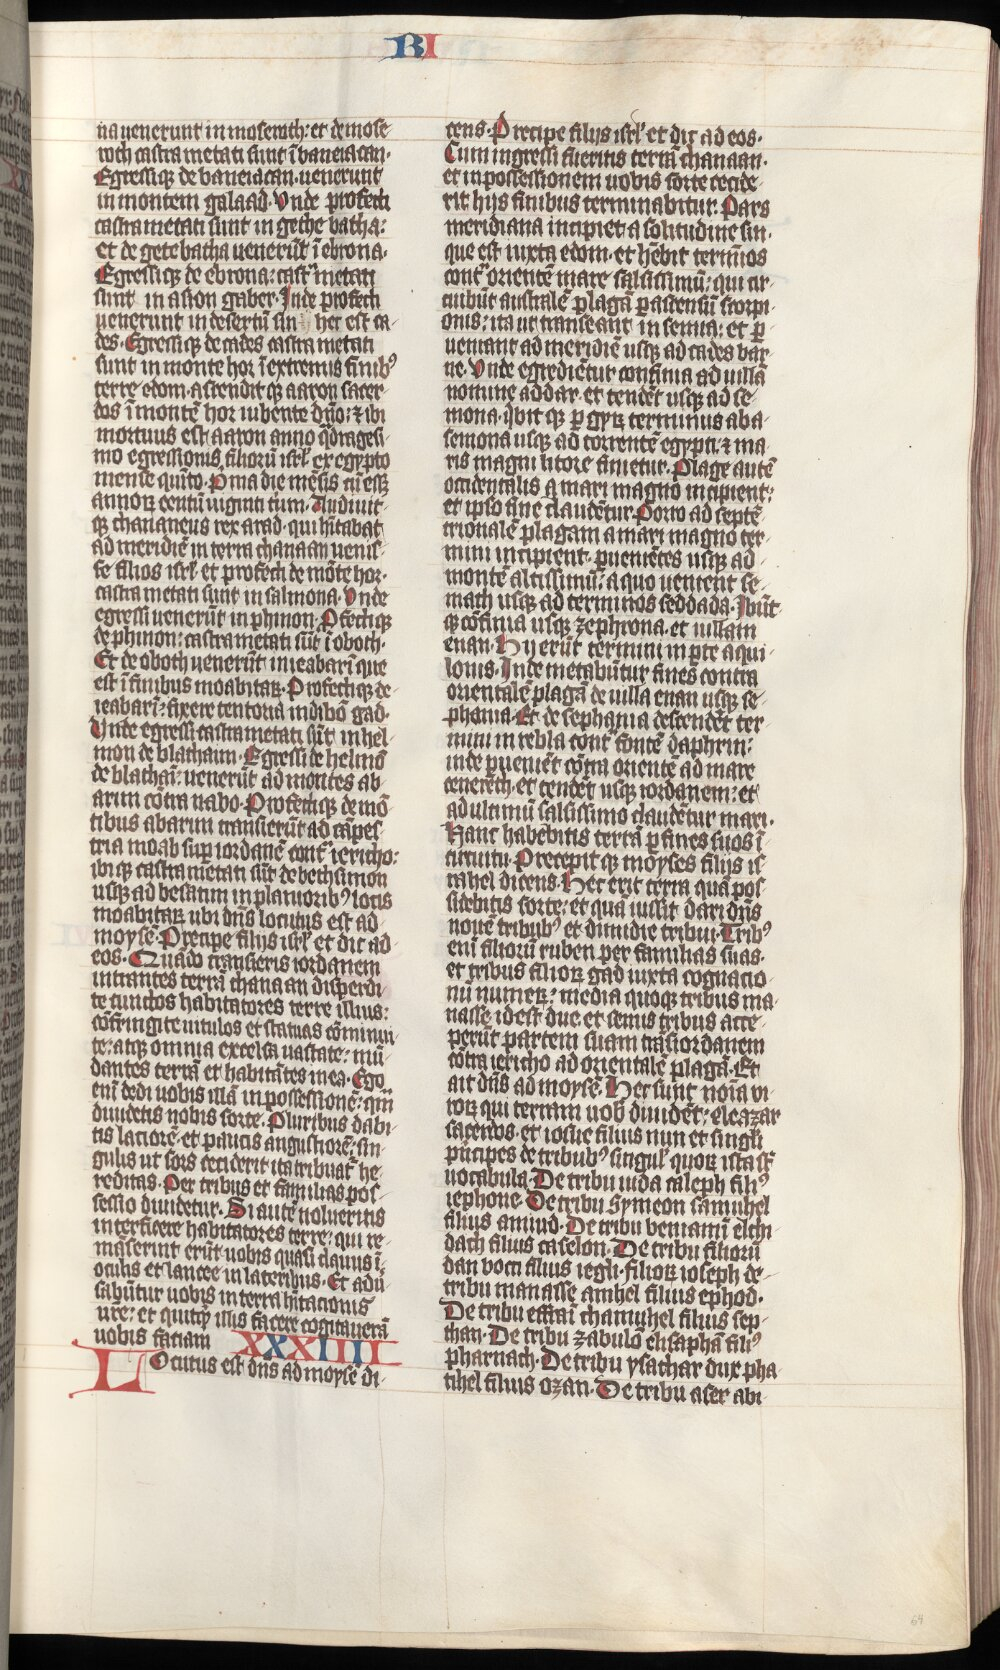 BI
na uenerunt in moseroth: et de mose-
roth castra metati sunt ī baneiacan.
Egressiq; de baneiacan. uenerunt
in montem galaad. Vnde profecti
castra metati sunt in gethe batha:
et de gete batha uenerūt ī ebrona.
Egressiq; de ebrona: castͬ metati
sunt in asion gaber. Inde profecti
uenerunt in desertū sin hec est ca-
des. Egressiq; de cades castra metati
sunt in monte hor ī extremis finibꝰ
terre edom. ascenditq; aaron sacer-
dos ī montē hor iubente dn̄o: ⁊ ibi
mortuus est aaron anno q̄dragesi-
mo egressionis filiorū isrl̓ ex egypto
mense quīto. Pma die mēsis cū eēꝫ
annoꝝ centū uiginti trium. Audiuit-
q; chananeus rex arad. qui hītabat
ad meridiē in terra chanaan uenis-
se filios isrl̓ et profecti de mōte hor.
castra metati sunt in salmona. Vnde
egressi uenerūt in phinon. Pfectiq;
de phinon: castra metati sūt ī oboth.
Et de oboth uenerūt in ieabarī que
est ī finibus moabitaꝝ. Profectiq; de
ieabarī: fixere tentoria in dibō gad.
Vnde egressi castra metati sūt in hel-
mon de blathaim. Egressi de helmō
de blathaī: uenerūt ad montes ab-
arim cōtra nabo. Profectiq; de mō-
tibus abarim transierūt ad cāpes-
tria moab suꝑ iordanē contͬ iericho:
ibiq; castra metati sūt de bethsimon
usq; ad belsatim in planioribꝰ locis
moabitaꝝ ubi dn̄s locutus est ad
moysē. Precipe filijs isrl̓ et dic ad
eos. Quādo transieris iordanem
intrantes terrā chanaan disperdi-
te cunctos habitatores terre illius:
cōfringite titulos et statuas cōminui-
te: atq; omnia excelsa uastate: mū-
dantes terrā et habitātes in ea. Ego
enī dedi uobis illā in possessionē: quā
diuidetis uobis sorte. Pluribus dabi-
tis laciorē. et paucis angustiorē: sin-
gulis ut sors ceciderit ita tribuatͬ he-
reditas. Per tribus et familias pos-
sessio diuidetur. Si autē uolueritis
interficere habitatores terre: qui re-
māserint erūt uobis quasi clauus ī
oculis et lancee in lateribus. Et adū-
sabūtur uobis in terra hītacionis
ure: et quitqͥd illis facere cogitauerā
uobis faciam XXXIIII
Locutus est dn̄s ad moysē di-
cens. Precipe filijs isrl̓ et dic ad eos.
Cum ingressi fueritis terrā chanaan.
et in possessionem uobis sorte cecide-
rit hijs finibus terminabitur. Pars
meridiana incipiet a solitudine sin.
que est iuxta edom. et hēbit termīos
contͬ orientē mare salsissimū: qui cir-
cuibūt australē plagā ꝑ ascensū scorpi-
onis: ita ut transeant in senna: et ꝑ-
ueniant ad meridiē usq; ad cades bar-
ne. Vnde egrediētur confinia ad uillā
nomine addar. et tendēt usq; ad se-
mona. ibit q; ꝑ gyꝝ terminus aba
semona usq; ad torrentē egypti. ⁊ ma-
ris magni litore finietur. Plage autē
occidentalis a mari magno incipient:
et ipso fine claudētur. Porro ad septē-
trionalē plagam a mari magno ter-
mini incipient. ꝑuenientes usq; ad
montē altissimū: a quo uenient se-
math usq; ad terminos seddada. Ibūt-
q; cōfinia usq; zephrona. et uillam
enan. Hij erūt termini in ꝑte aqui-
lonis. Inde metabūtur fines contra
orientalē plagā de uilla enan usq; se-
phama. Et de sephama descendēt ter-
mini in rebla contͬ fontē daphnin:
inde ꝑueniēt cōtra orientē ad mare
cenereth. et tendēt usq; iordanem: et
ad ultimū salsissimo claudētur mari.
Hanc habebitis terrā ꝑ fines suos ī
circuitu. Precepit q; moyses filijs is-
rahel dicens. Hec erit terra quā pos-
sidebitis sorte: et quā iussit dari dn̄s
nouē tribubꝰ et dimidie tribui. Tribꝰ
enī filiorū ruben per familias suas.
et tribus filioꝝ gad iuxta cognacio-
nū numeꝝ: media quoq; tribus ma-
nasse id est due et semis tribus acce-
perūt partem suam trās iordanem
cōtra iericho ad orientalē plagā. Et
ait dn̄s ad moysē. Hec sunt noīa vi-
roꝝ qui terram uob̓ diuidēt: eleazar
sacerdos. et iosue filius nun et singl̓i
pͥncipes de tribubꝰ singul̓ quoꝝ ista sͭ
uocabula. De tribu iuda caleph filiꝰ
iephone. De tribu Symeon samuhel
filius amiud. De tribu beniamī elchi-
dach filius caselon. De tribu filiorū
dan bocci filius iegli. filioꝝ ioseph de
tribu manasse amhel filius ephod.
De tribu effraī chamuhel filius sep-
than. De tribu zabulō elisaphā filiꝰ
pharnach. De tribu ysachar dux pha-
tihel filius ozan. De tribu aser abi-
64